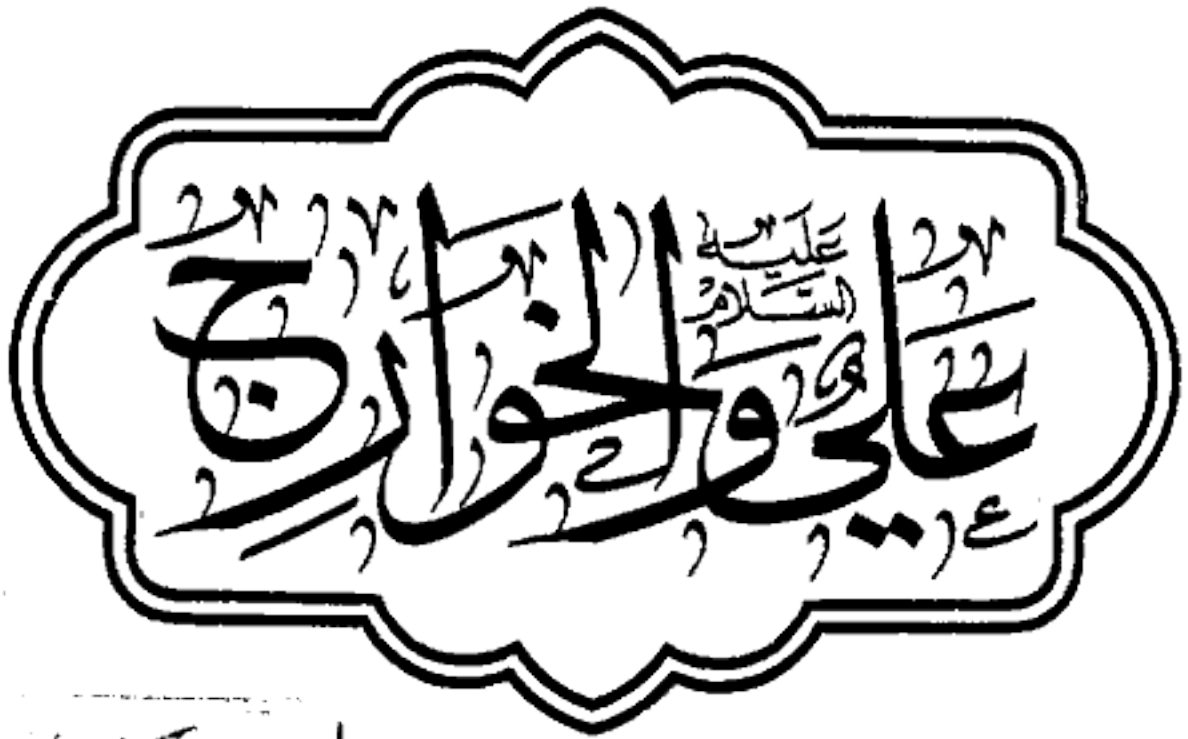 علي عليه السلام والخوارج